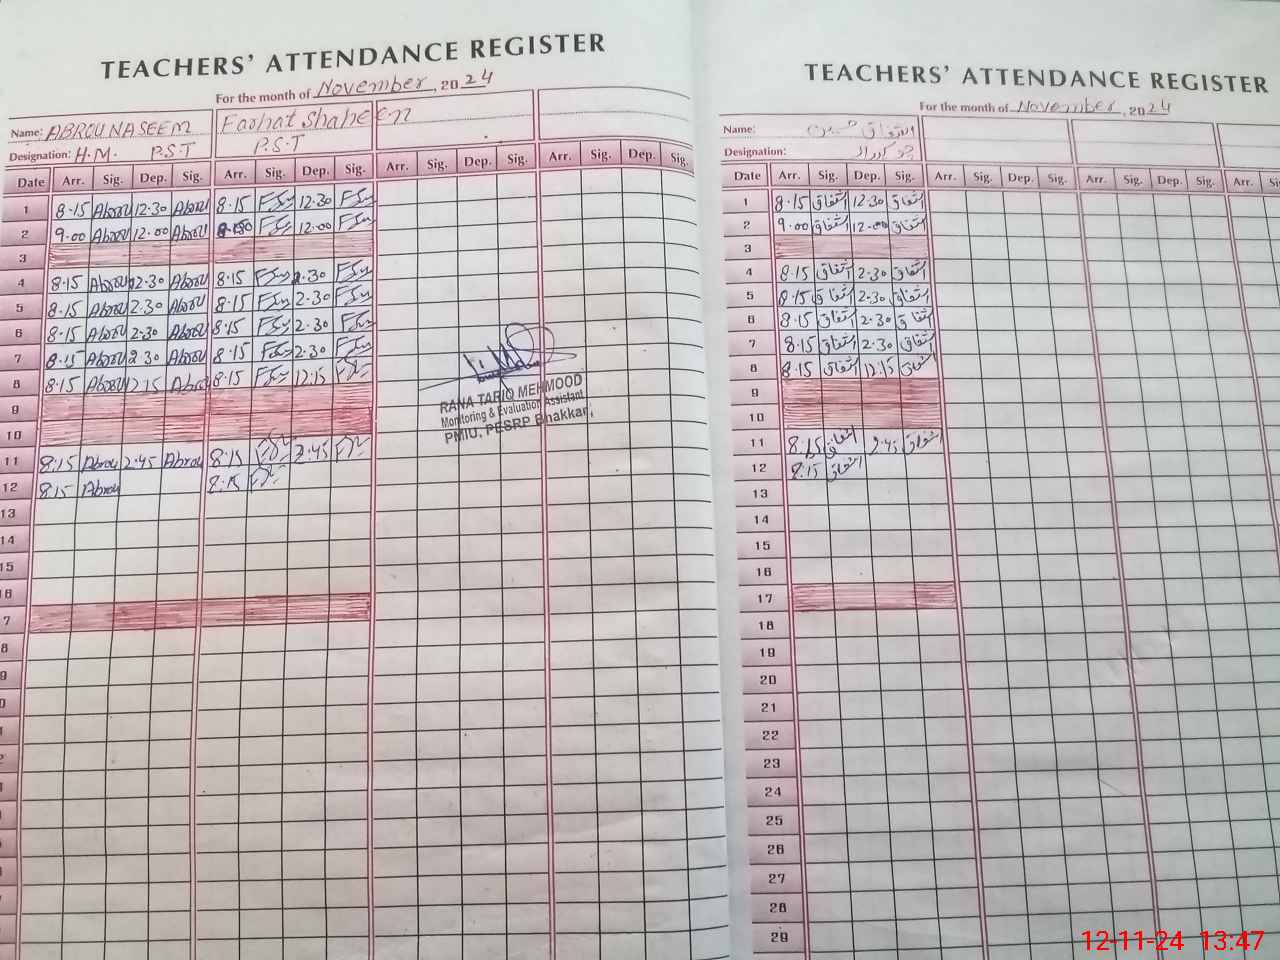 TEACHERS' ATTENDANCE REGISTER
For the month of November, 2024
Name: ABROU NASEEM Farhat Shaheen
Designation: H.M. P.S.T P.S.T
Date Arr. Sig. Dep. Sig. Arr. Sig. Dep. Sig. Arr. Sig. Dep. Sig. Arr. Sig. Dep. Sig.
1 8.15 Abrou 12.30 Abrou 8.15 12.30
2 9.00 Abrou 12.00 Abrou 12.00
3
4 8.15 Abrou 2.30 Abrou 8.15 2.30
5 8.15 Abrou 2.30 Abrou 8.15 2.30
6 8.15 Abrou 2.30 Abrou 8.15 2.30
7 8.15 Abrou 2.30 Abrou 8.15 2.30
8 8.15 Abrou 12.15 Abrou 8.15 12.15
9
10
11 8.15 Abrou 2.45 Abrou 8.15 2.45
12 8.15 Abrou 8.15
13
14
15
16
7
8
9
0
RANA TARIQ MEHMOOD
Monitoring & Evaluation Assistant
PMIU, PESRP Bhakkar.
TEACHERS' ATTENDANCE REGISTER
For the month of November, 2024
Name: اشفاق حسین
Designation: چوکیدار
Date Arr. Sig. Dep. Sig. Arr. Sig. Dep. Sig. Arr. Sig. Dep. Sig. Arr.
1 8.15 اشفاق 12.30 اشفاق
2 9.00 اشفاق 12.00 اشفاق
3
4 8.15 اشفاق 2.30 اشفاق
5 8.15 اشفاق 2.30 اشفاق
6 8.15 اشفاق 2.30 اشفاق
7 8.15 اشفاق 2.30 اشفاق
8 8.15 اشفاق 12.15 اشفاق
9
10
11 8.15 اشفاق 2.45 اشفاق
12 8.15 اشفاق
13
14
15
16
17
18
19
20
21
22
23
24
25
26
27
28
29
12-11-24 13:47